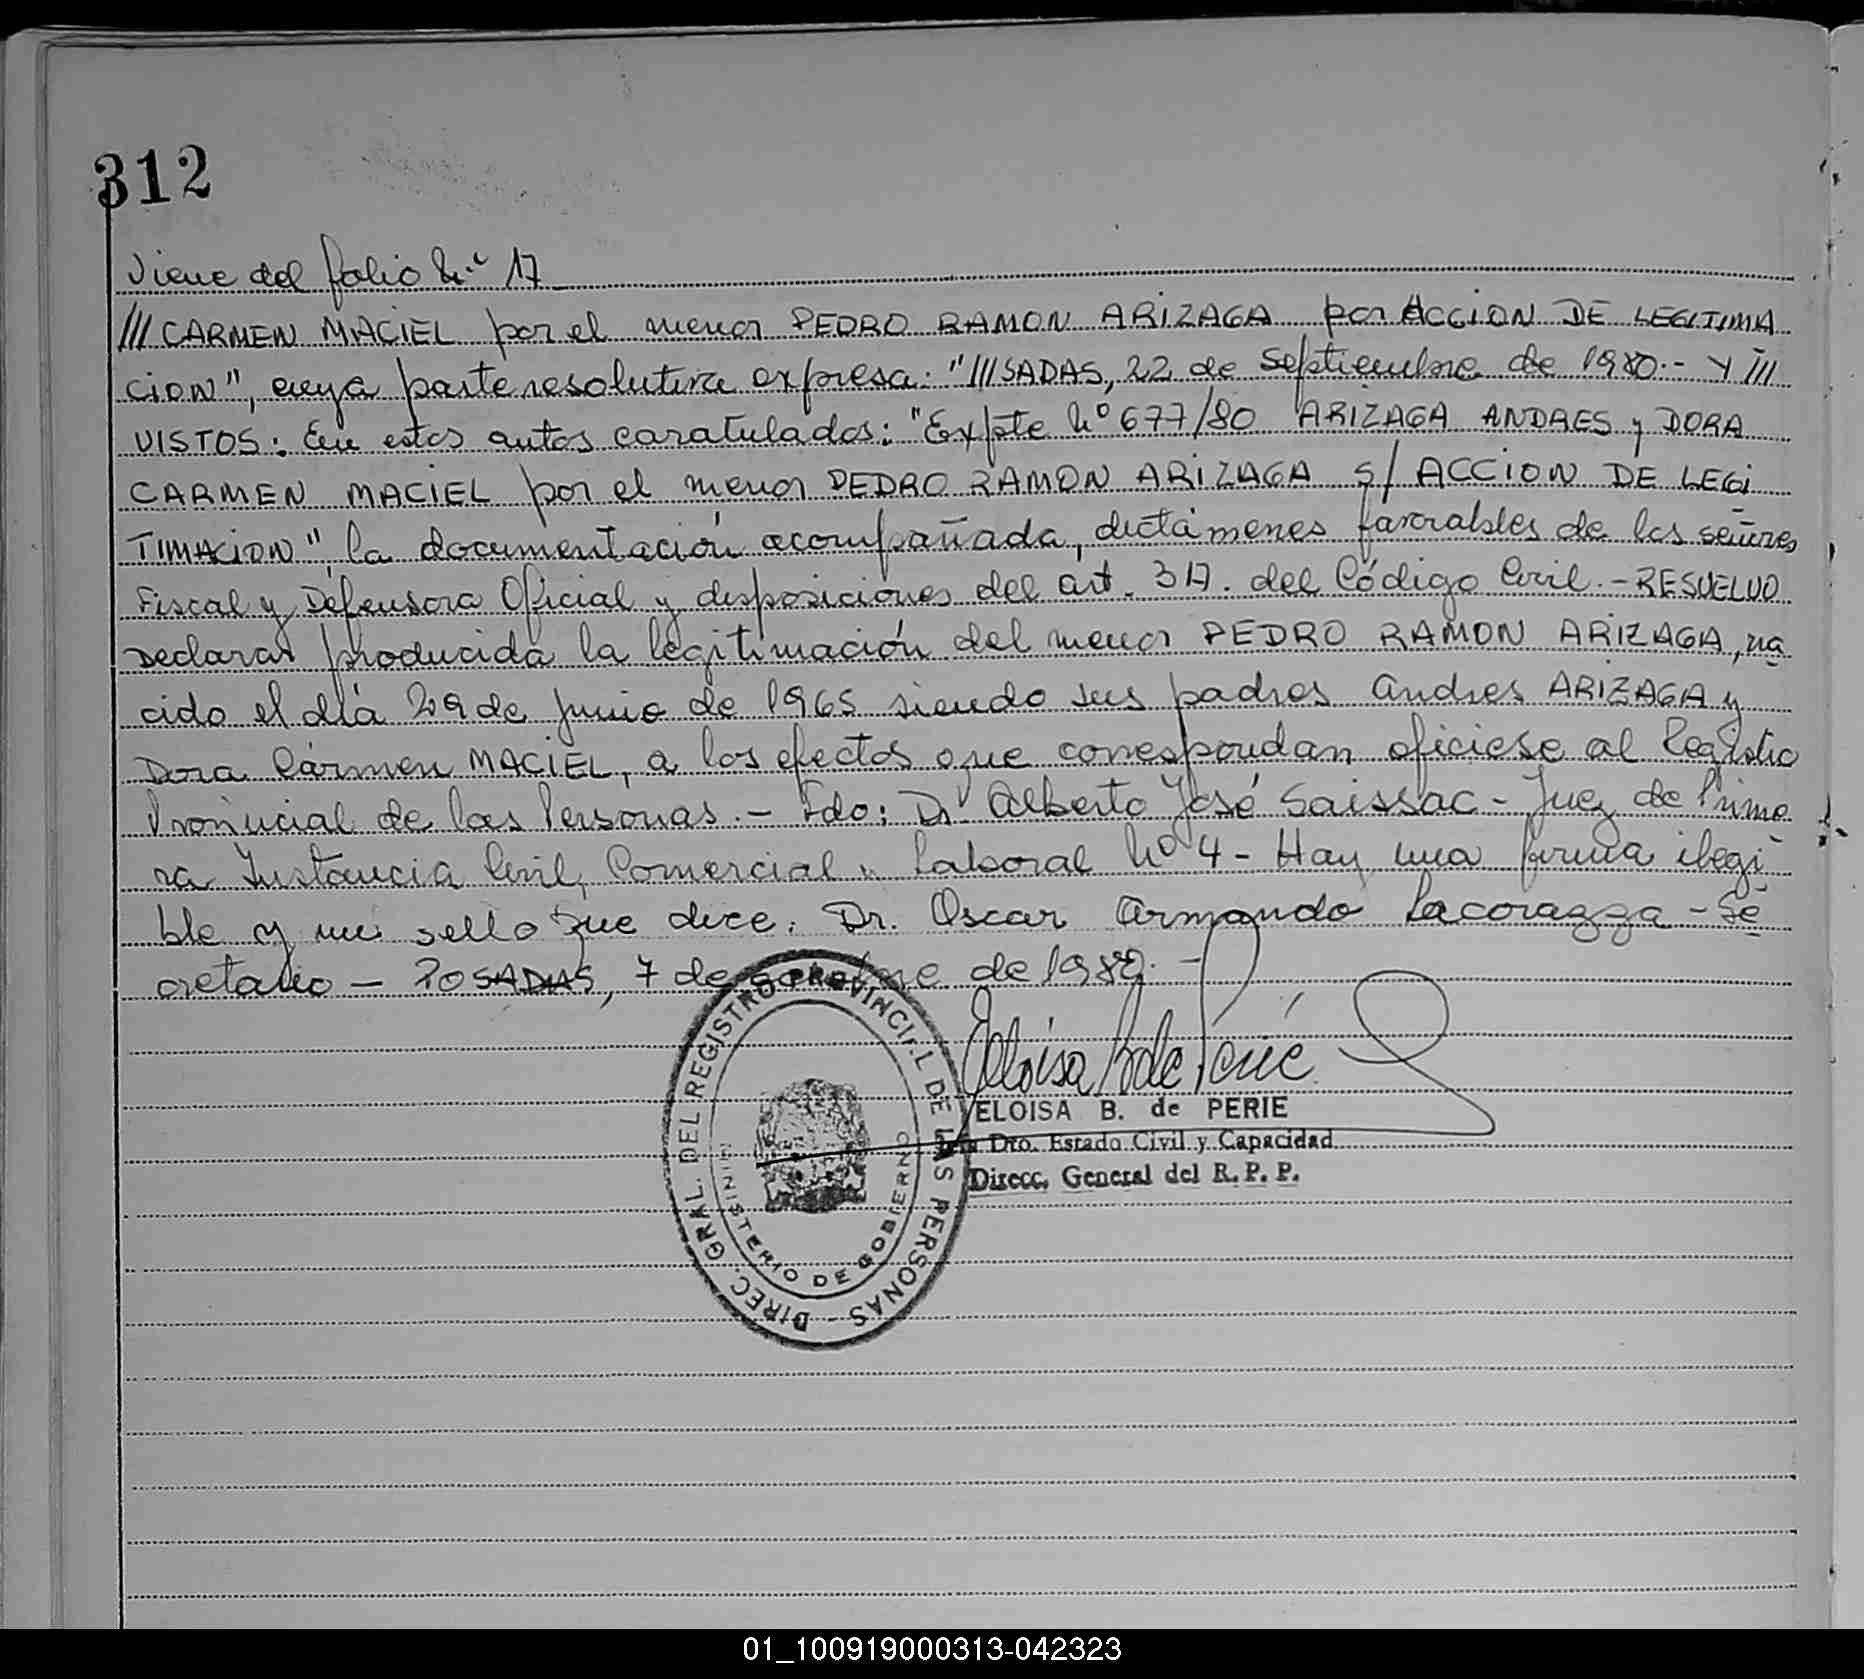 312
Viene del folio Nº 17
/// CARMEN MACIEL por el menor PEDRO RAMON ARIZAGA por ACCION DE LEGITIMA
CION", cuya parte resolutiva expresa: "///SADAS, 22 de Septiembre de 1980.- Y ///
VISTOS: En estos autos caratulados: "Expte Nº 677/80 ARIZAGA ANDRES y DORA
CARMEN MACIEL por el menor PEDRO RAMON ARIZAGA S/ ACCION DE LEGI
TIMACION" la documentación acompañada, dictámenes favorables de los señores
Fiscal y Defensora Oficial y disposiciones del art. 317. del Código Civil.- RESUELVO
Declarar producida la legitimación del menor PEDRO RAMON ARIZAGA, na
cido el día 29 de Junio de 1965 siendo sus padres Andres ARIZAGA y
Dora Cármen MACIEL, a los efectos que correspondan oficiese al Registro
Provincial de las Personas.- Fdo: Dr Alberto José Saissac - Juez de Prime
ra Instancia Civil, Comercial y Laboral Nº 4 - Hay una firma ilegi
ble y un sello que dice: Dr. Oscar Armando Lacorazza - Se
cretario - POSADAS, 7 de de 1980.-
Eloisa B de Perié
ELOISA B. de PERIE
Jefa Dto. Estado Civil y Capacidad
Direcc. General del R. P. P.
DIREC. GRAL. DEL REGISTRO PROVINCIAL DE LAS PERSONAS
MINISTERIO DE GOBIERNO
01_100919000313-042323